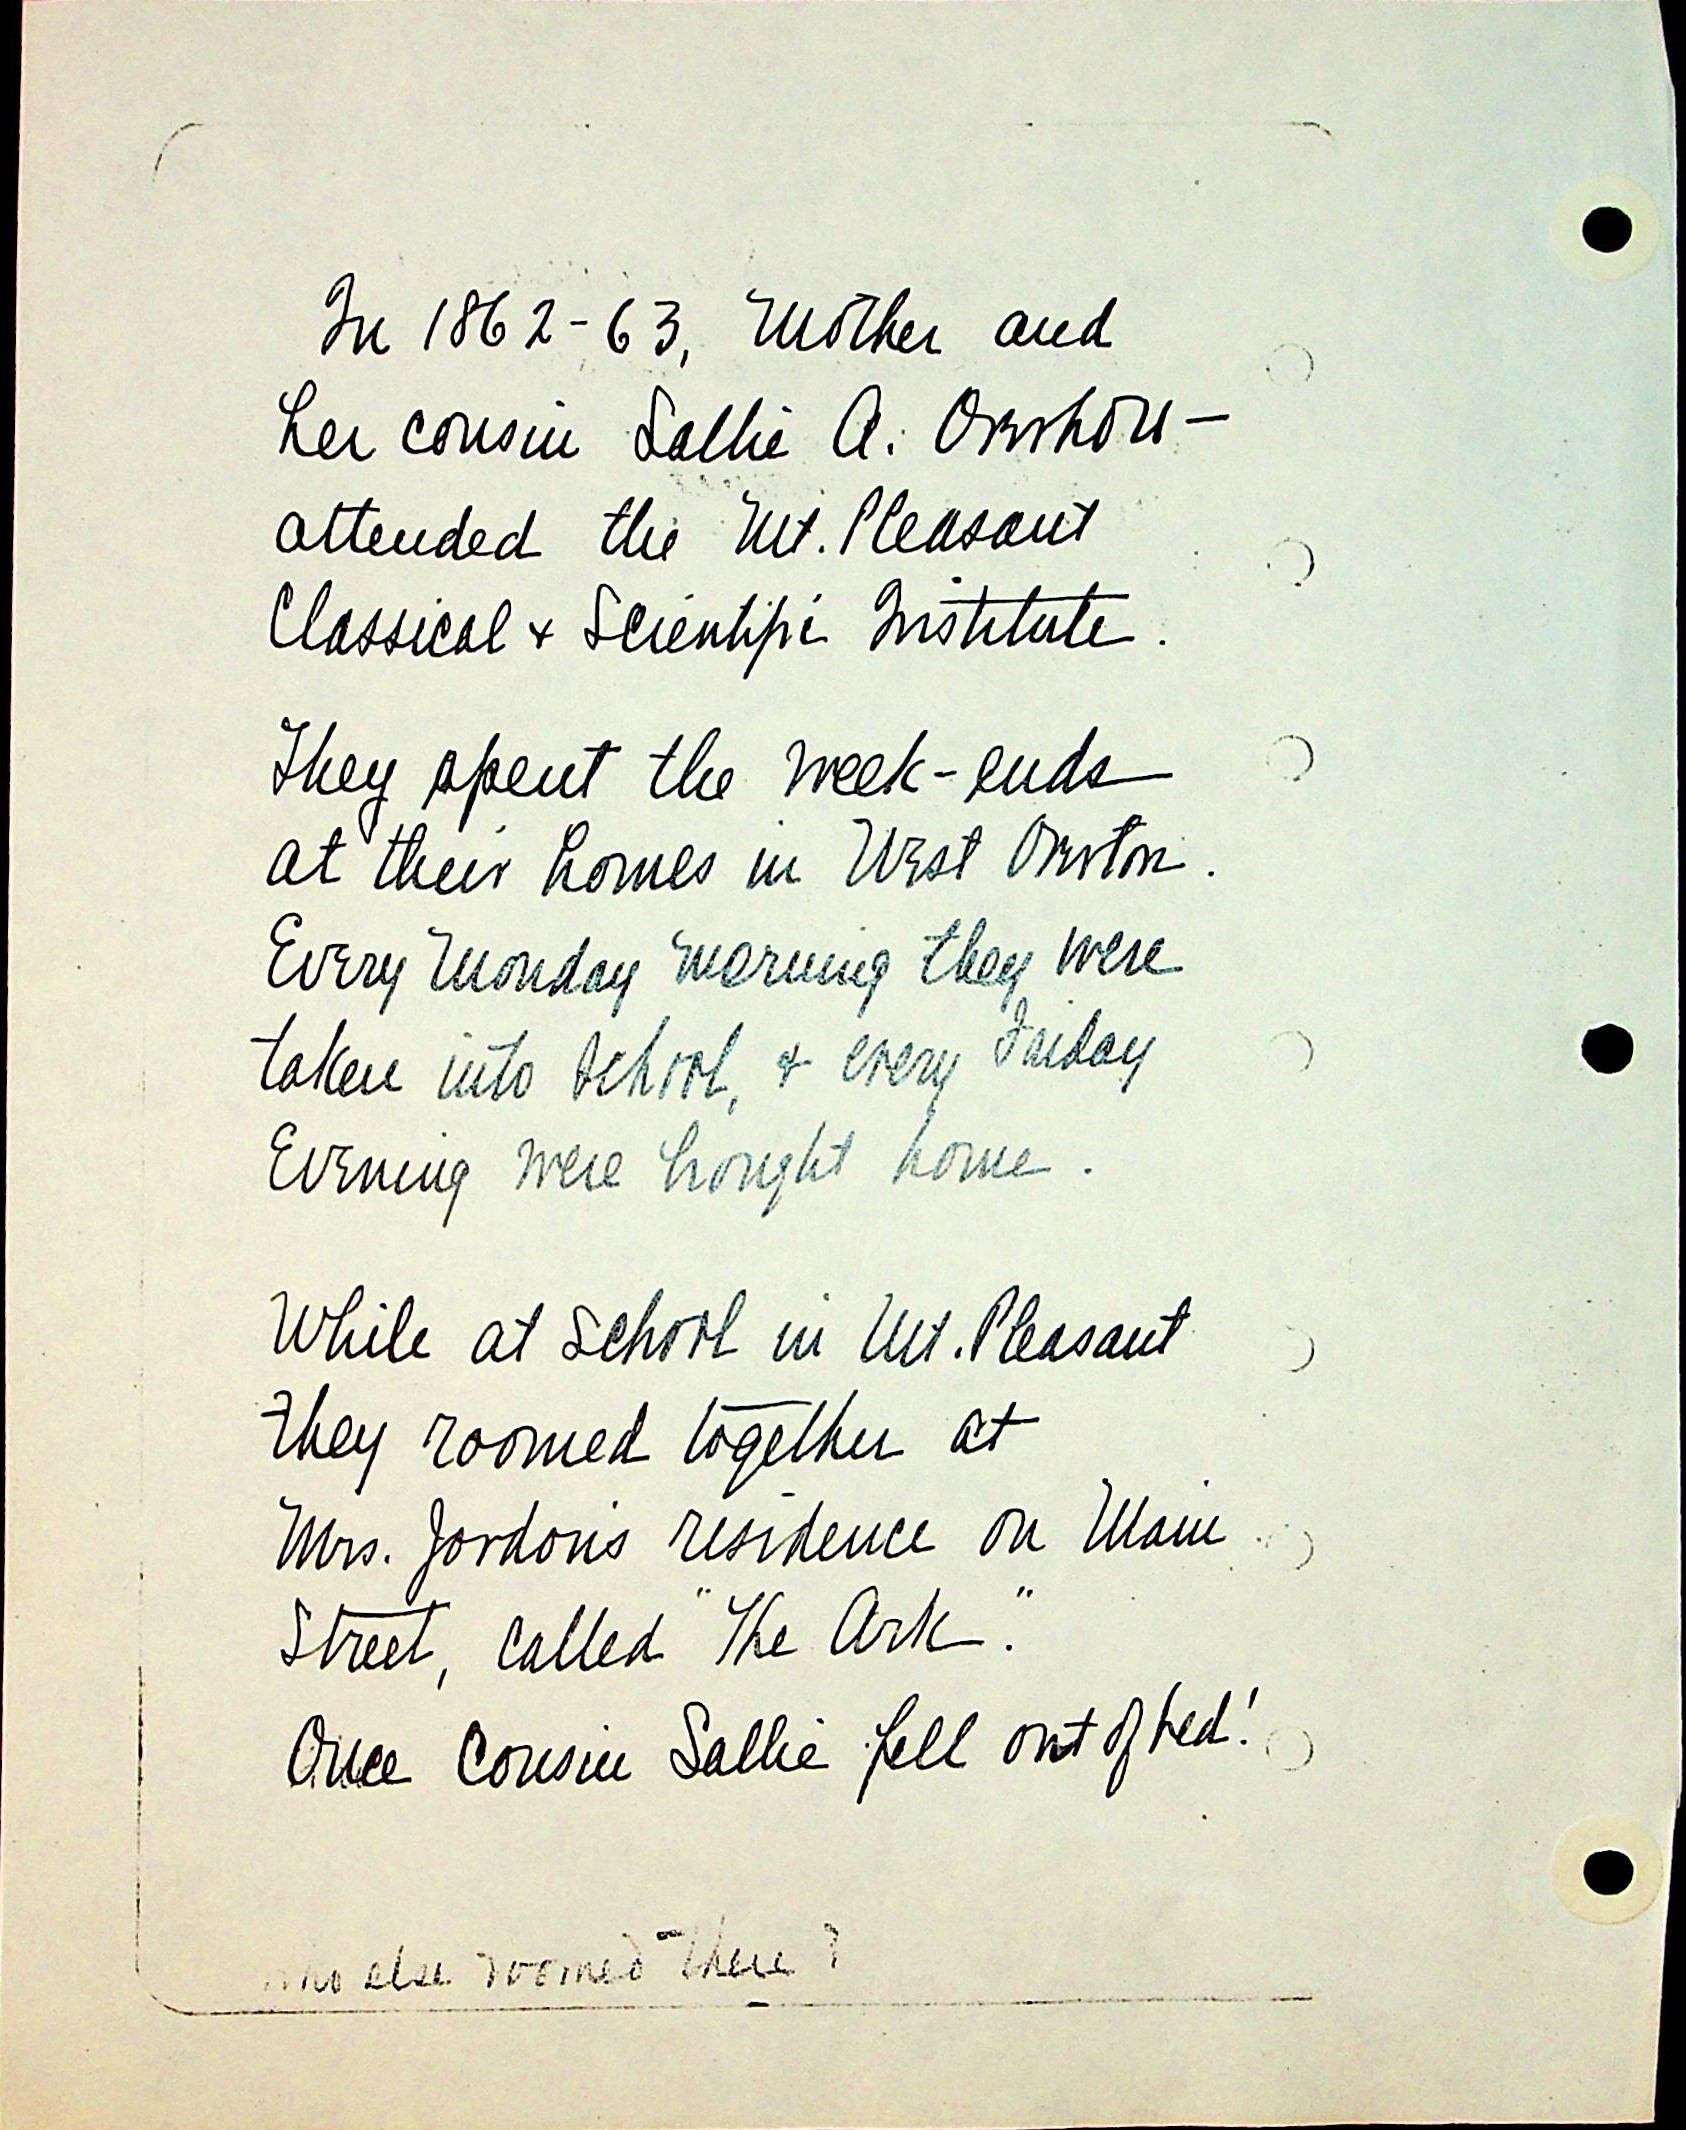 In 1862-63, Mother and
her cousin Sallie A. Overholt
attended the Mt. Pleasant
Classical & Scientific Institute.
They spent the week-ends
at their homes in West Overton.
Every Monday morning they were
taken into school, & every Friday
Evening were brought home.
While at school in Mt. Pleasant
they roomed together at
Mrs. Jordon's residence on Main
Street, called "The Ark."
Once Cousin Sallie fell out of bed!
who else roomed there?